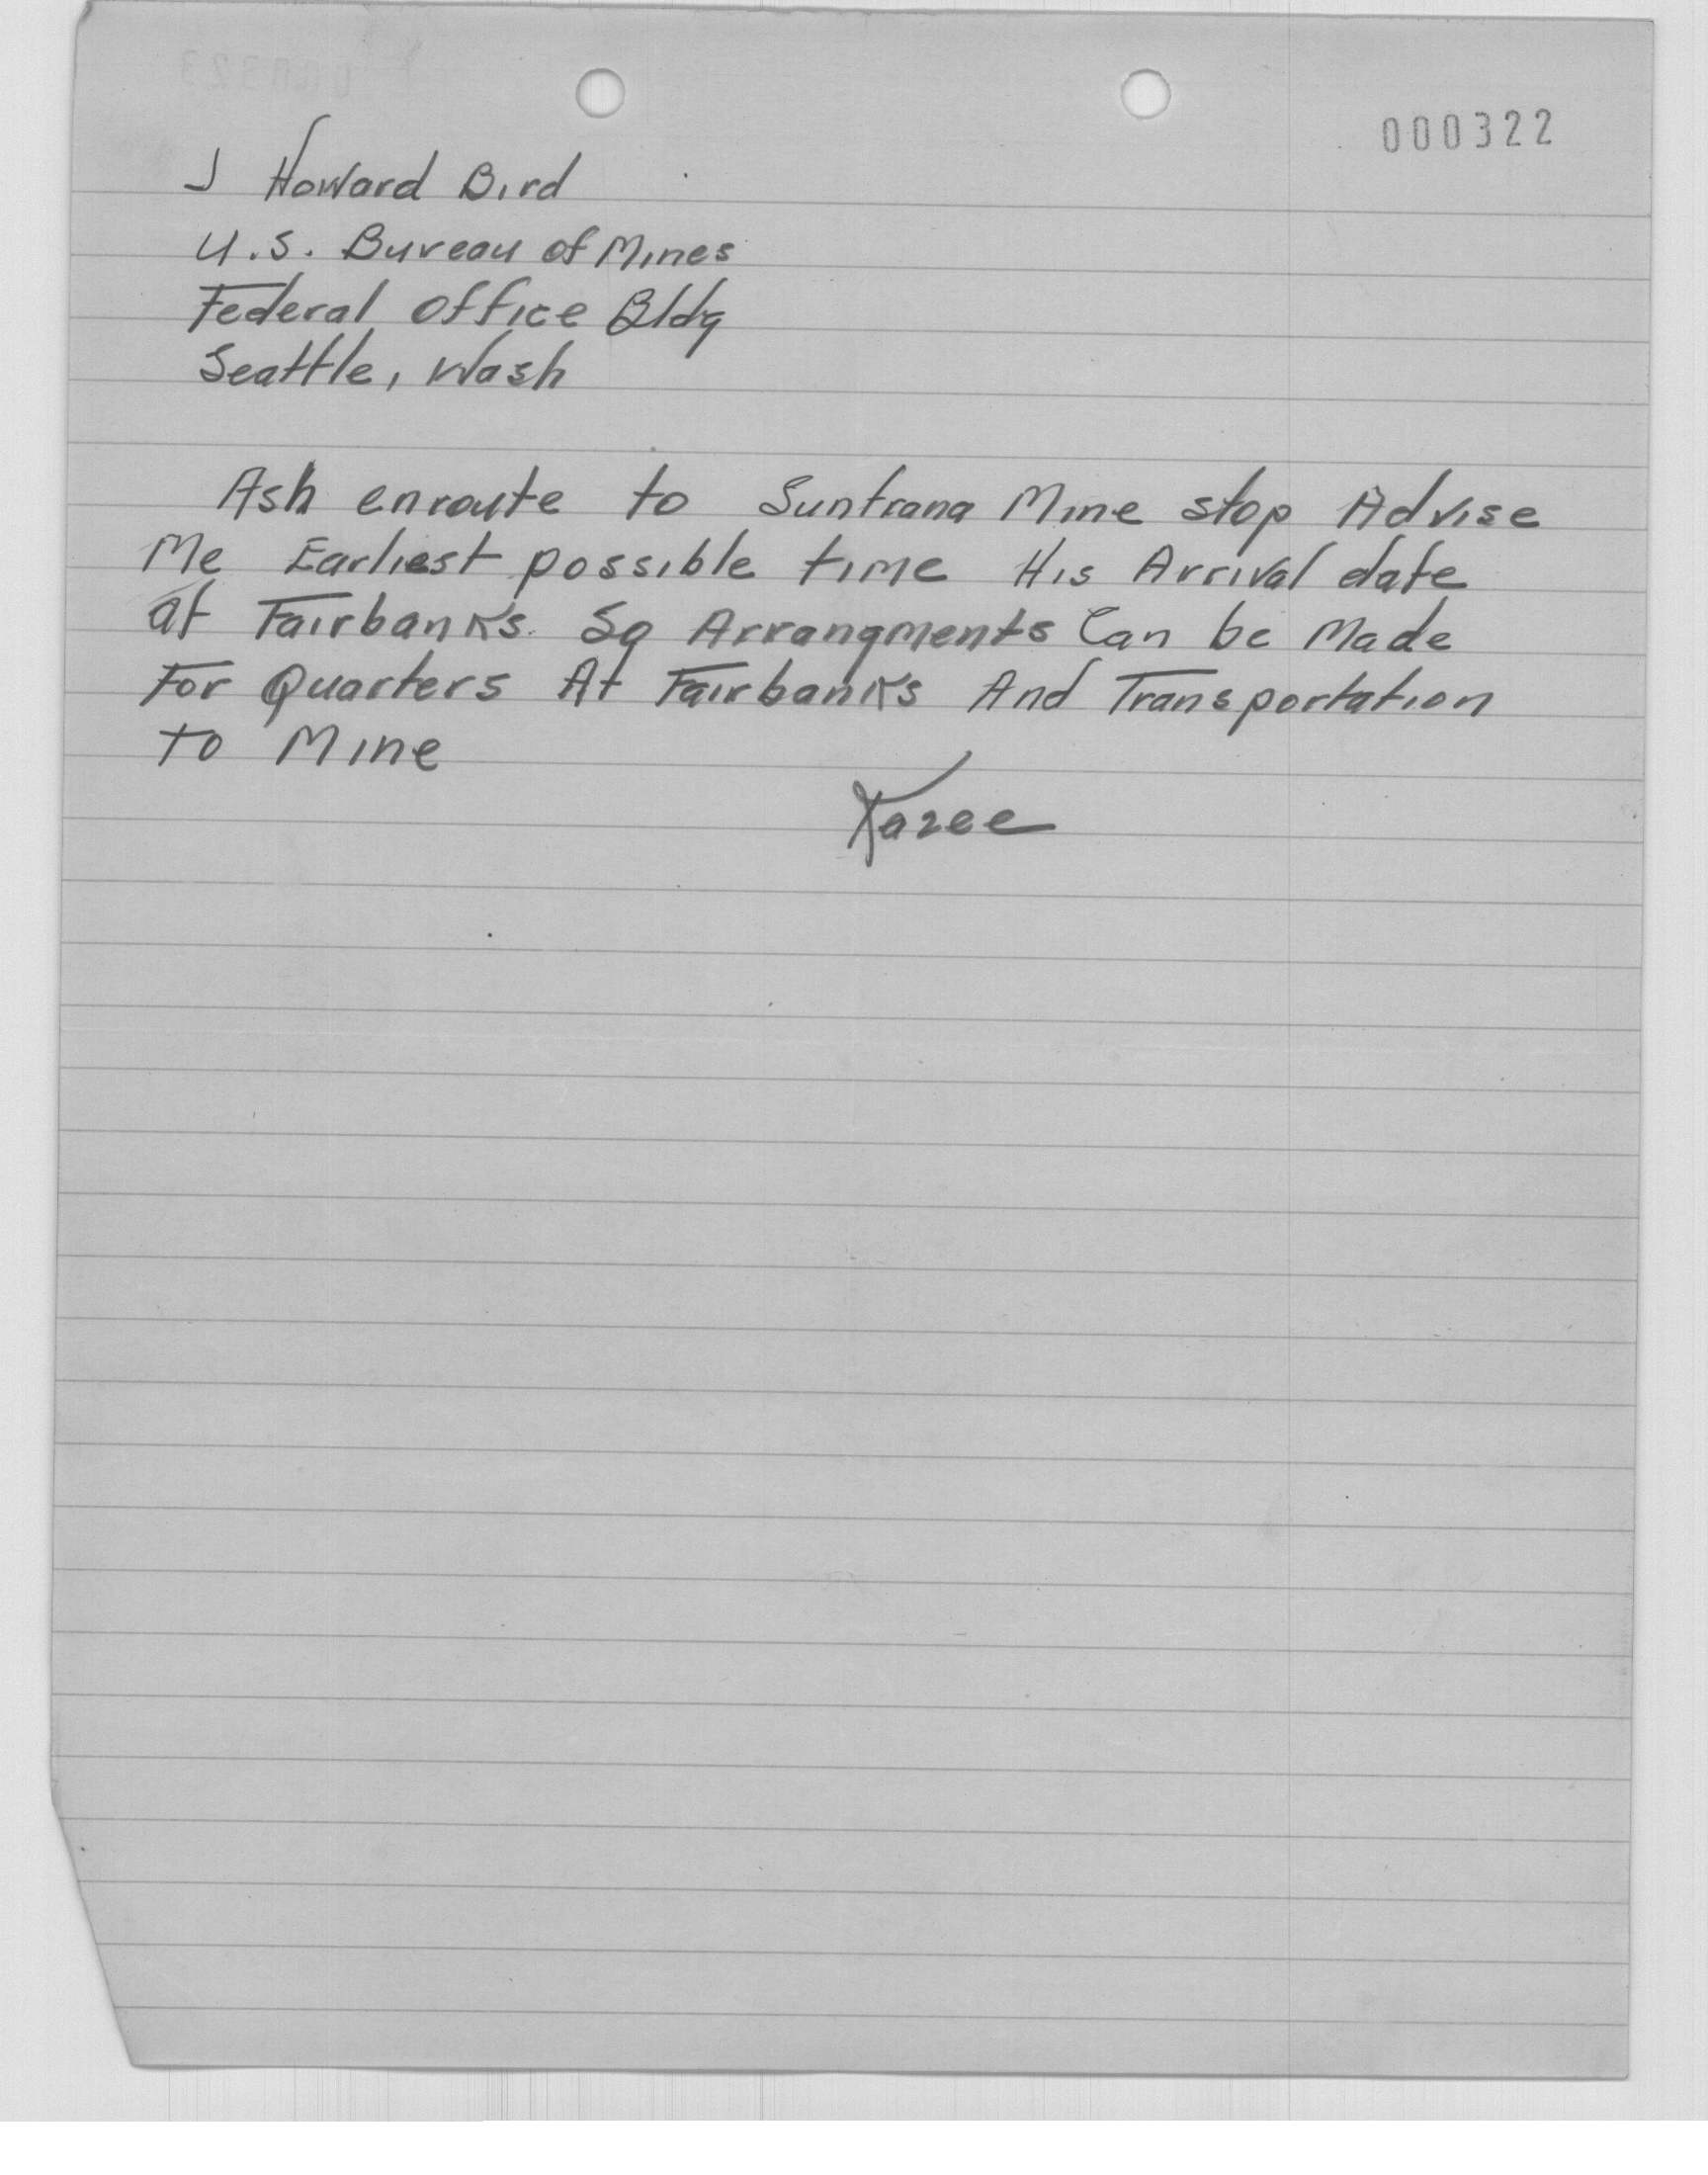 000322
J Howard Bird
U.S. Bureau of Mines
Federal Office Bldg
Seattle, Wash
Ash enroute to Suntrana Mine stop Advise
Me Earliest possible time His Arrival date
at Fairbanks. So Arrangments Can be Made
For Quarters At Fairbanks And Transportation
to Mine
Kazee